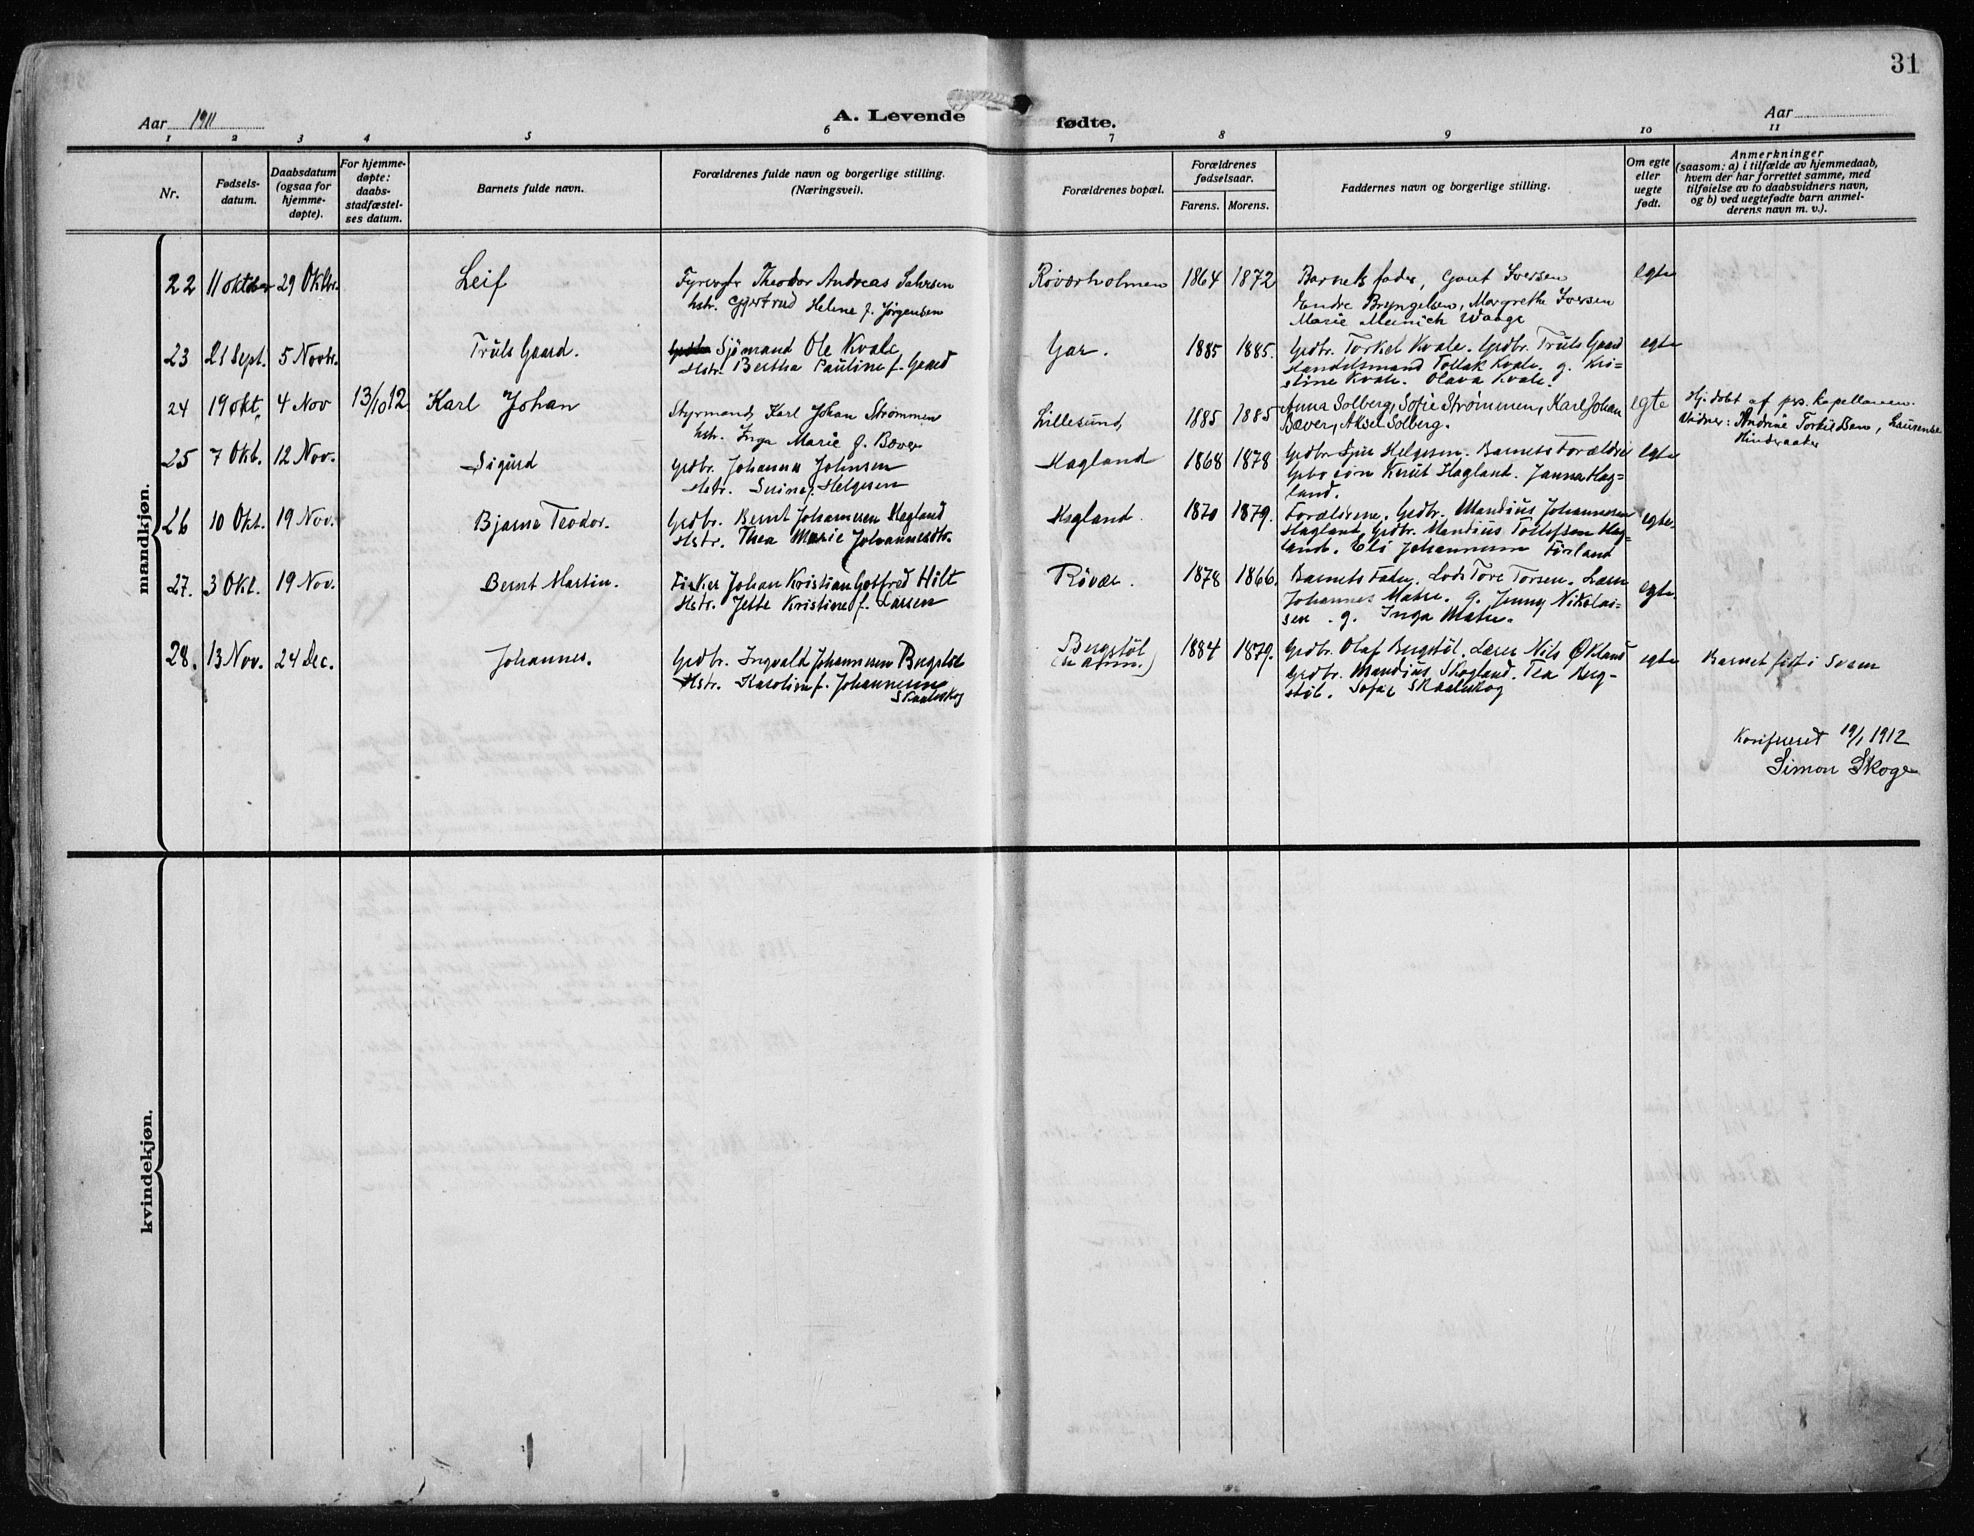 31
Aar 1911
A. Levende fødte.
Aar
1 2 3 4 5 6 7 8 9 10 11
Nr.
Fødsels-
datum.
Daabsdatum
(ogsaa for
hjemme-
døpte).
For hjemme-
døpte:
daabs-
stadfæstel-
ses datum.
Barnets fulde navn.
Forældrenes fulde navn og borgerlige stilling.
(Næringsvei).
Forældrenes bopæl.
Forældrenes
fødselsaar.
Farens. Morens.
Faddernes navn og borgerlige stilling.
Om egte
eller
uegte
født.
Anmerkninger
(saasom: a) i tilfælde av hjemmedaab,
hvem der har forrettet samme, med
tilføielse av to daabsvidners navn,
og b) ved uegtefødte barn anmel-
derens navn m. v.).
mandkjøn.
22 11 oktober 29 Oktbr. Leif
Theodor Andreas
hstr. Gjertrud Helene f. Jørgensen
Røværholmen 1864 1872
Barnets fader, Iversen
Endre Bryngelsen, Margrethe Iversen
Marie Meinich Waage
egte
23 21 Sept. 5 Novbr. Truls Gaard.
Sjömand Ole Kvale
Hstr. Bertha Pauline f. Gaard
Gar. 1885 1885.
Grdbr. Torkel Kvale. Grdbr. Truls Gaard
Handelsmand Tollak Kvale. g. Kri-
stine Kvale. Olava Kvale.
egte
24 19 okt. 4 Nov 13/10 12 Karl Johan
Styrmand Karl Johan Strømmen
hstr. Inga Marie f. Bæver
Lillesund 1885 1885
Anna Solberg, Sofie Strømmen, Karl Johan
Bæver, Aksel Solberg.
egte
Hj. døbt af prs. kapellanen.
Vidner: Andrine Torkildsen, Laurense
Hinderaaker
25 7 Okt. 12 Nov. Sigurd
Grdbr. Johannes Johnsen
Hstr. Serine f. Helgesen
Hagland 1868 1878
Grdbr. Helgesen. Barnets Forældre
søn Knut Hagland. Janna Hag-
land.
egte
26 10 Okt. 19 Nov. Bjarne Teodor.
Grdbr. Bernt Johannesen Hagland
Hstr. Thea Marie Johannesdtr.
Hagland. 1870 1879.
Forældrene, Grdbr. Mandius Johannesen
Hagland, Grdbr. Mandius Tollefsen Hag-
land. Eli Johannesen Førland
egte.
27. 3 Okt. 19 Nov. Bernt Martin.
Fisker Johan Kristian Gotfred Hilt
Hstr. Jette Kristine f. Larsen
Røvær. 1878 1866.
Barnets Fader. Lods Tore Torsen.
Johannes Matre. g. Jenny Nikolai-
sen. g. Inga Matre.
egte.
28. 13 Nov. 24 Dec. Johannes.
Grdbr. Ingvald Johannesen Bugstøl
Hstr. Karoline f. Johannesen
Skaaleskog
Bugstøl
1884 1879.
Grdbr. Olaf Bugstøl. Lærer Nils Økland
Grdbr. Mandius Skogland. Tea Bug-
støl. Sofie Skaaleskog
egte
Barnet født i Sveen
Konfereret 19/1 1912
Simon Skoge
kvindekjøn.